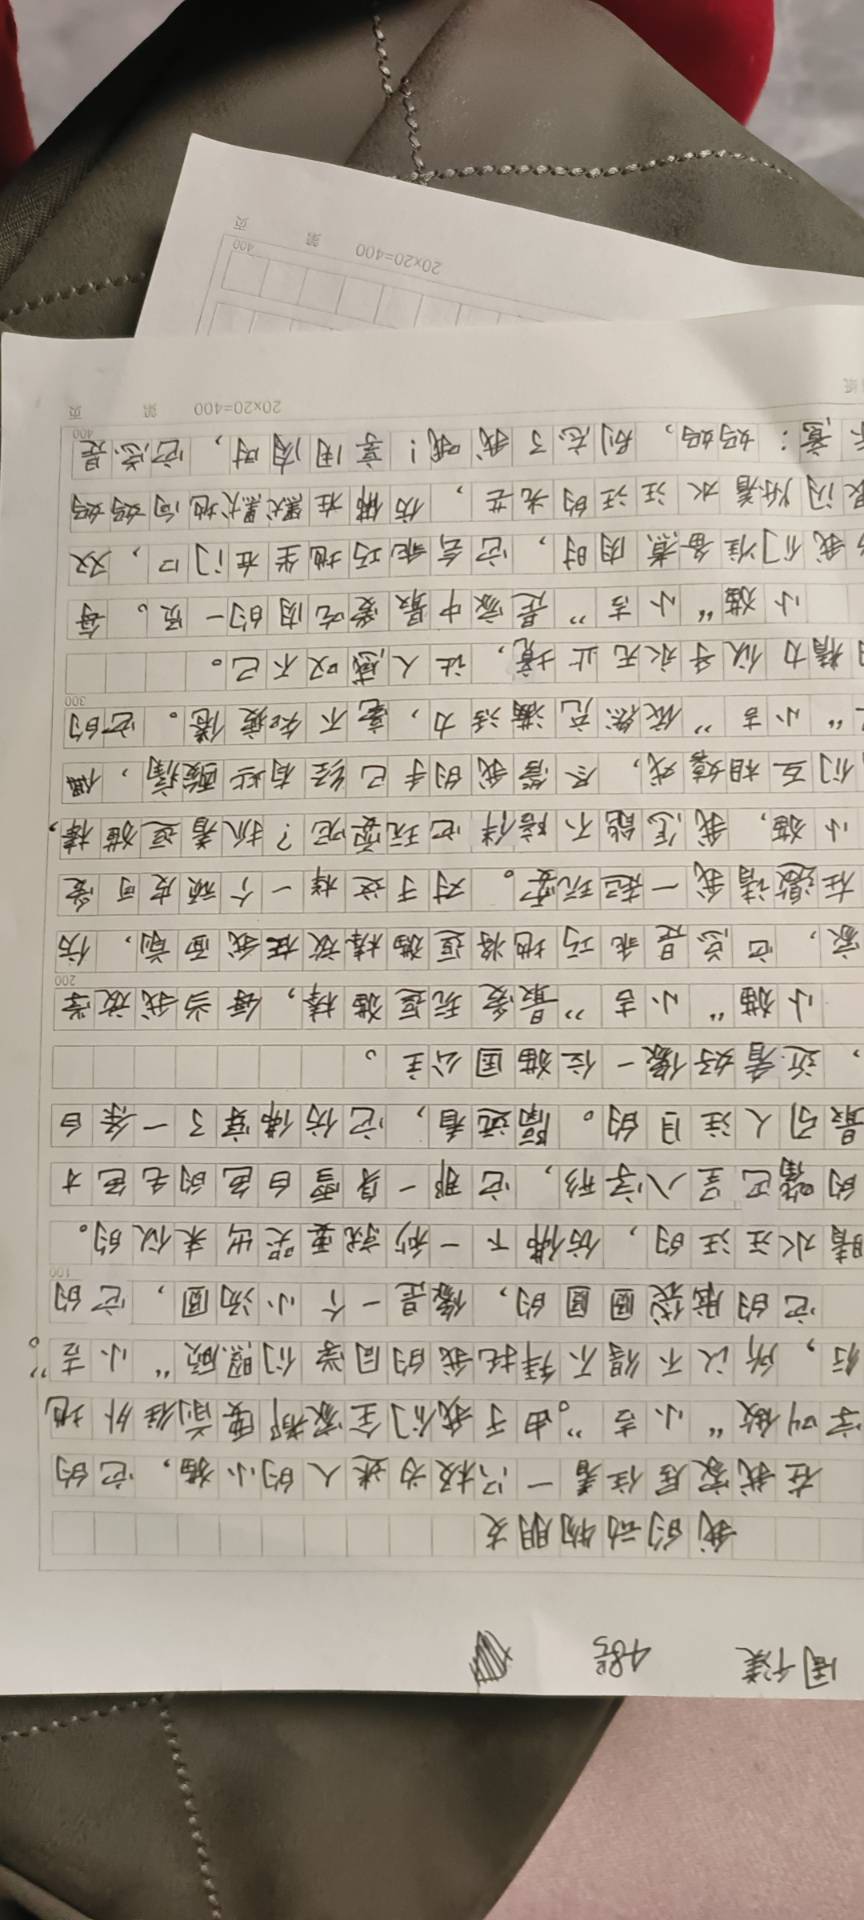 周
485
我的动物朋友
在我家居住着一只极为迷人的小猫，它的
字叫做“小吉”。由于我们全家都要前往外地
行，所以不得不拜托我的同学们照顾“小吉”。
它的脑袋圆圆的，像是一个小汤圆，它的
睛水汪汪的，仿佛下一秒就要哭出来似的。
的嘴巴呈八字形，它那一身雪白色的毛色才
最引人注目的。隔远看，它仿佛穿了一条白
，近看好像一位猫国公主。
小猫“小吉”最爱玩逗猫棒，每当我放学
家，它总是乖巧地将逗猫棒放在我面前，仿
在邀请我一起玩耍。对于这样一个顽皮可爱
小猫，我怎能不陪伴它玩耍呢？抓着逗猫棒，
们互相嬉戏，尽管我的手已经有些酸痛，但
“小吉”依然充满活力，毫不知疲倦。它的
精力似乎永无止境，让人感叹不已。
小猫“小吉”是家中最爱吃肉的一员。每
我们准备煮肉时，它会乖巧地坐在门口，双
眼闪烁着水汪汪的光芒，仿佛在默默地向妈妈
示意：妈妈，别忘了我哦！享用肉时，它总是
100
200
300
400
20×20=400 第 页
20×20=400 第 页
400